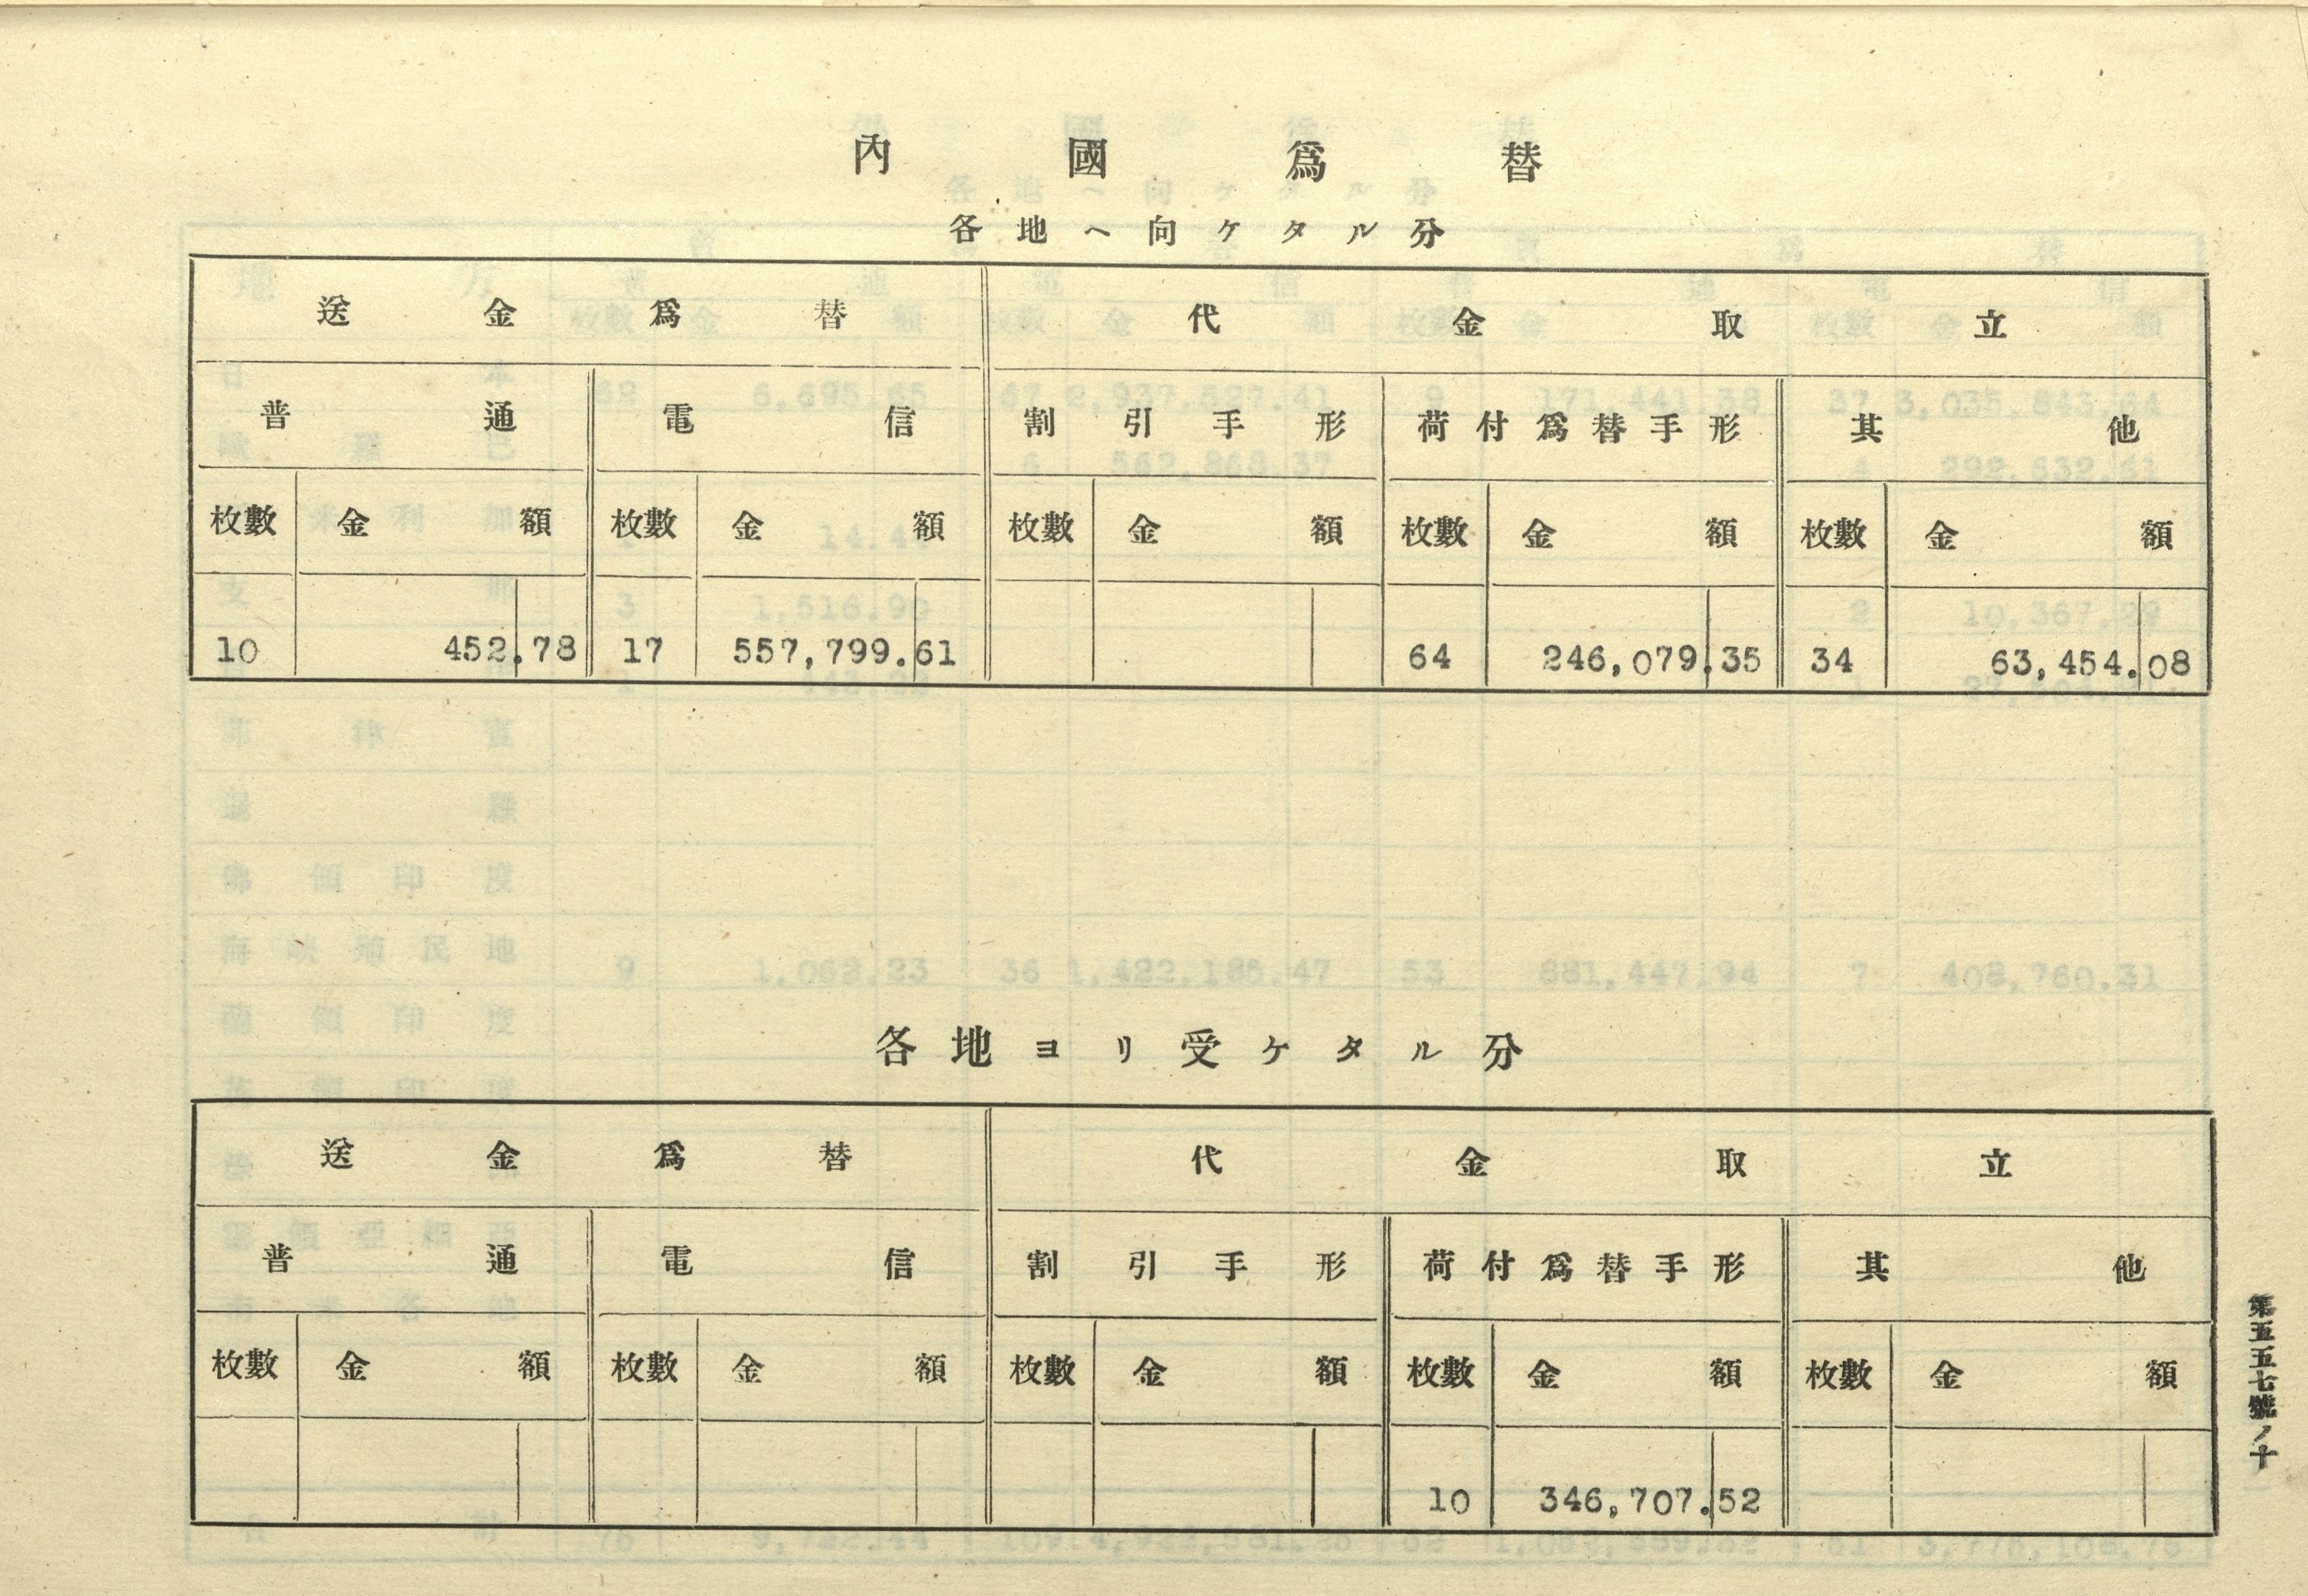 內國爲替
各地ヘ向ケタル分
送金爲替 代金取立
普通 電信 割引手形 荷付爲替手形 其他
枚數 金額 枚數 金額 枚數 金額 枚數 金額 枚數 金額
10 452.78 17 557,799.61 64 246,079.35 34 63,454.08
各地ヨリ受ケタル分
送金爲替 代金取立
普通 電信 割引手形 荷付爲替手形 其他
枚數 金額 枚數 金額 枚數 金額 枚數 金額 枚數 金額
10 346,707.52
第五五七號ノ十